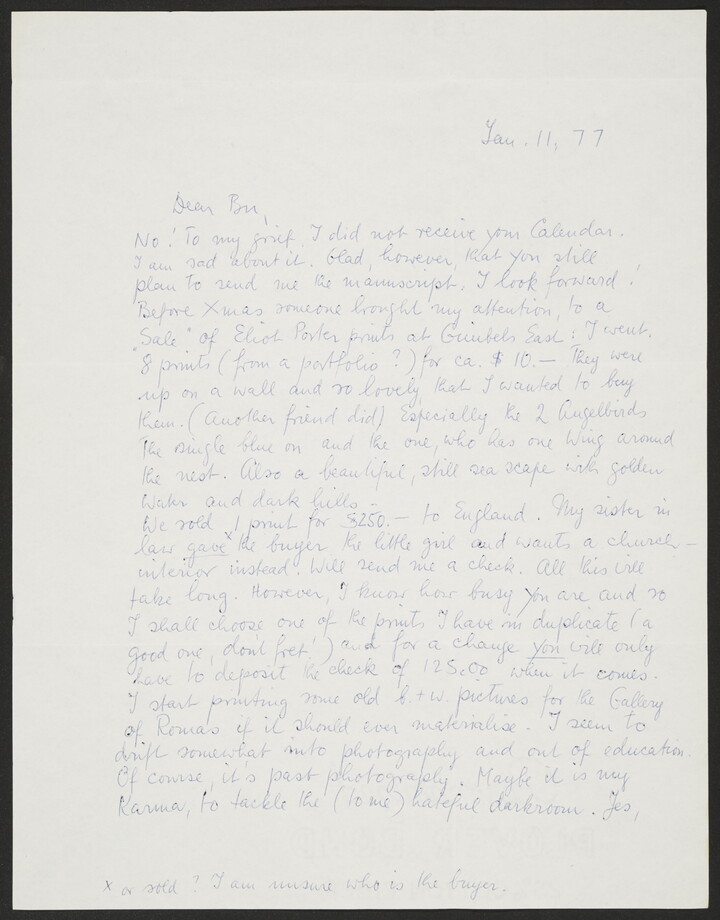 Jan. 11, 77
Dear Bn,
No! To my grief, I did not receive your Calendar.
I am sad about it. Glad, however, that you still
plan to send me the manuscript. I look forward!
Before Xmas someone brought my attention, to a
"Sale" of Eliot Porter prints at Gimbels East: I went.
8 prints (from a portfolio?) for ca. $10.— They were
up on a wall and so lovely that I wanted to buy
them. (Another friend did) Especially the 2 Angelbirds
The single blue on and the one, who has one wing around
the nest. Also a beautiful, still sea scape with golden
water and dark hills.—
We sold 1 print for $250.— to England. My sister in
law gave x the buyer the little girl and wants a church-
interior instead. Will send me a check. All this will
take long. However, I know how busy you are and so
I shall choose one of the prints I have in duplicate (a
good one, don't fret!) and for a change you will only
have to deposit the check of 125.00 when it comes.
I start printing some old b.+w. pictures for the Gallery
of Romas if it should ever materialise. I seem to
drift somewhat into photography and out of education.
Of course, it's past photography. Maybe it is my
Karma, to tackle the (to me) hateful darkroom. Yes,
x or sold? I am unsure who is the buyer.